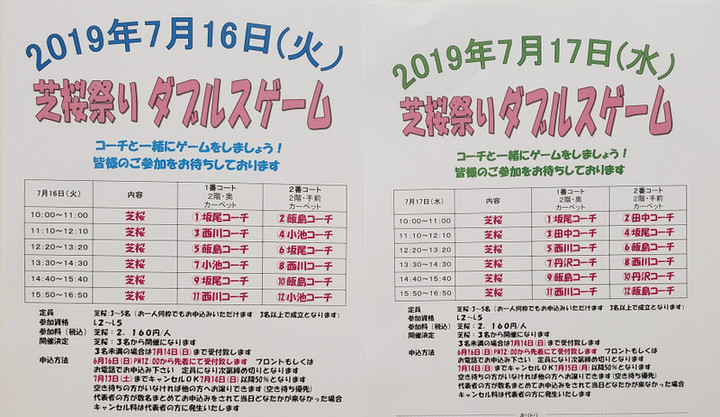 2019年7月16日(火)
芝桜祭り ダブルスゲーム
コーチと一緒にゲームをしましょう!
皆様のご参加をお待ちしております
7月16日(火) 内容 1番コート 2階・奥 カーペット 2番コート 2階・手前 カーペット
10:00~11:00 芝桜 ①坂尾コーチ ②飯島コーチ
11:10~12:10 芝桜 ③西川コーチ ④小池コーチ
12:20~13:20 芝桜 ⑤飯島コーチ ⑥坂尾コーチ
13:30~14:30 芝桜 ⑦小池コーチ ⑧西川コーチ
14:40~15:40 芝桜 ⑨坂尾コーチ ⑩飯島コーチ
15:50~16:50 芝桜 ⑪西川コーチ ⑫小池コーチ
定員 芝桜:3~5名 (お一人何枠でもお申込みいただけます 3名以上で成立となります)
参加資格 L2~L5
参加料(税込) 芝桜:2.160円/人
開催決定 芝桜:3名から開催になります
3名未満の場合は7月14日(日)まで受付致します
申込方法 6月16日(日)PM12:00から先着にて受付致します フロントもしくは
お電話でお申込み下さい 定員になり次第締め切りとなります
7月13日(土)までキャンセルOK7月14日(日)以降50%となります
空き待ちの方がいなければ他の方へお譲りできます(空き待ち優先)
代表者の方が数名まとめてお申込みをされて当日どなたかが来なかった場合
キャンセル料は代表者の方に発生いたします
2019年7月17日(水)
芝桜祭り ダブルスゲーム
コーチと一緒にゲームをしましょう!
皆様のご参加をお待ちしております
7月17日(水) 内容 1番コート 2階・奥 カーペット 2番コート 2階・手前 カーペット
10:00~11:00 芝桜 ①坂尾コーチ ②田中コーチ
11:10~12:10 芝桜 ③田中コーチ ④坂尾コーチ
12:20~13:20 芝桜 ⑤西川コーチ ⑥飯島コーチ
13:30~14:30 芝桜 ⑦丹沢コーチ ⑧西川コーチ
14:40~15:40 芝桜 ⑨飯島コーチ ⑩丹沢コーチ
15:50~16:50 芝桜 ⑪西川コーチ ⑫飯島コーチ
定員 芝桜:3~5名 (お一人何枠でもお申込みいただけます 3名以上で成立となります)
参加資格 L2~L5
参加料(税込) 芝桜:2.160円/人
開催決定 芝桜:3名から開催になります
3名未満の場合は7月14日(日)まで受付致します
申込方法 6月16日(日)PM12:00から先着にて受付致します フロントもしくは
お電話でお申込み下さい 定員になり次第締め切りとなります
7月14日(日)までキャンセルOK7月15日(月)以降50%となります
空き待ちの方がいなければ他の方へお譲りできます(空き待ち優先)
代表者の方が数名まとめてお申込みをされて当日どなたかが来なかった場合
キャンセル料は代表者の方に発生いたします